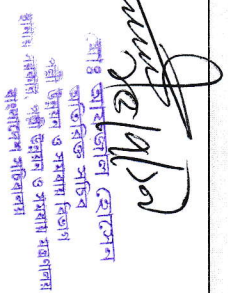 মোঃ আফজাল হোসেন
অতিরিক্ত সচিব
পল্লী উন্নয়ন ও সমবায় বিভাগ
স্থানীয় সরকার, পল্লী উন্নয়ন ও সমবায় মন্ত্রণালয়
বাংলাদেশ সচিবালয়